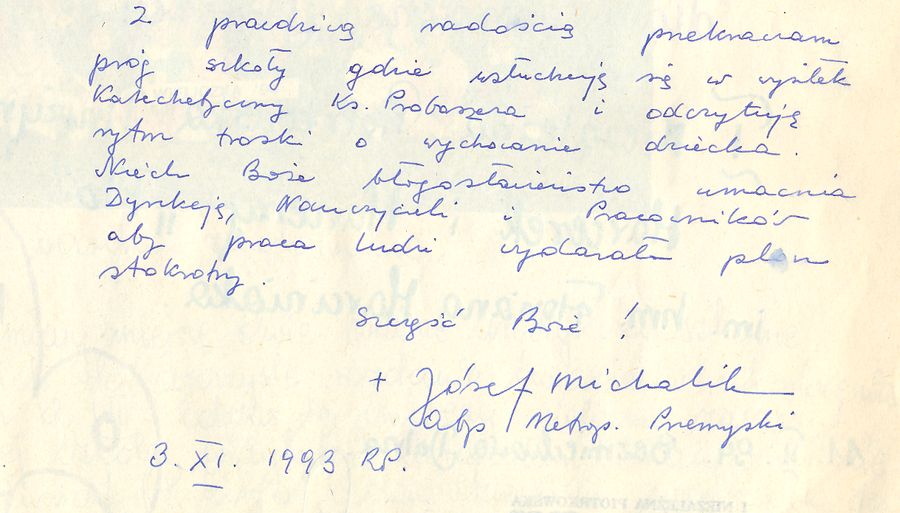 Z prawdziwą radością przekraczam
próg szkoły gdzie wsłuchują się w wysiłek
Katechetyczny Ks. Proboszcza i odczytują
rytm troski o wychowanie dziecka.
Niech Boże błogosławieństwo umacnia
Dyrekcję, Nauczycieli i Pracowników
aby praca ludzi wydawała plon
stokrotny.
Szczęść Boże!
+ Józef Michalik
abp Metrop. Przemyski
3. XI. 1993 RP.